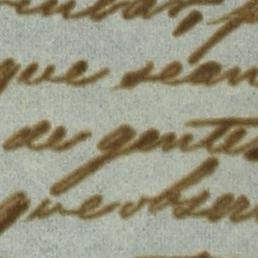 que sean
de gente
que obser